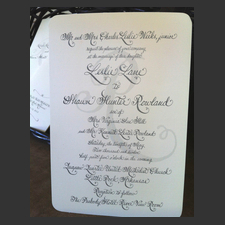 Mr and Mrs Charles Leslie Wilks, junior
request the pleasure of your company
at the marriage of their daughter
Lesley Lane
to
Shawn Hunter Rowland
son of
Mrs Virginia
and Mr Kenneth Rowland
Saturday, the of May
Two thousand and
half past four o'clock in the
United Methodist Church
Little Rock, Arkansas
Reception to follow
The Peabody Hotel Room